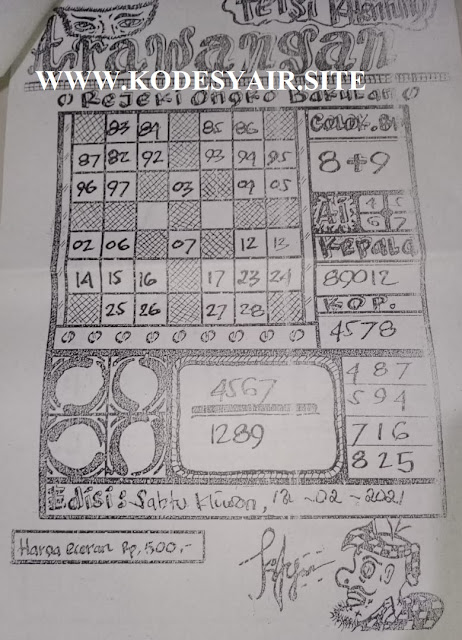 TETSI KHENIN
trawangan
WWW.KODESYAIR.SITE
ReJeKi Ongko Bakulan
83 84 85 86
87 82 92 93 94 95
96 97 03 04 05
02 06 07 12 13
14 15 16 17 23 24
25 26 27 28
COLOK.BI
8+9
AI
4 5
6 7
KEPALA
89012
KOP.
4578
4567
1289
487
594
716
825
Edisi: Sabtu Kliwon, 12-02-2021
Harga eceran Rp.500,-